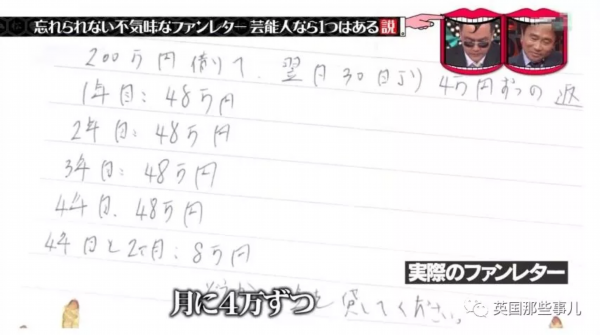 忘れられない不気味なファンレター 芸能人なら1つはある説
200万円借りて、翌月30日より4万円ずつの返
1年目:48万円
2年目:48万円
3年目:48万円
4年目、48万円
4年目と2ヶ月:8万円
を貸してください。
実際のファンレター
月に4万ずつ
英国那些事儿